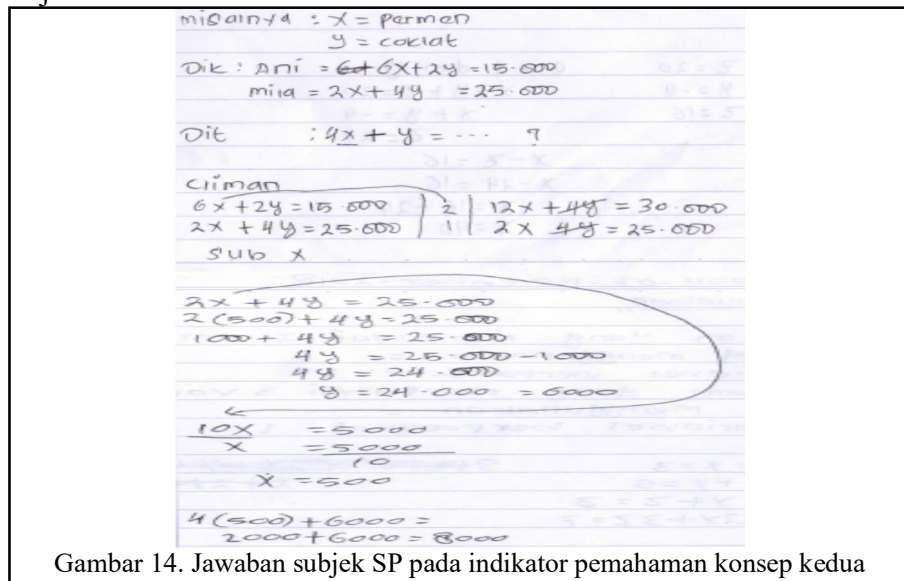 misalnya : x = permen
y = coklat
Dik : Ani = 6x+2y = 15.000
mila = 2x + 4y = 25.000
Dit : 4x + y = ... ?
Eliman
6x + 2y = 15.000 | 2 | 12x + 4y = 30.000
2x + 4y = 25.000 | 1 | 2x 4y = 25.000
sub x
2x + 4y = 25.000
2 (500) + 4y = 25.000
1000 + 4y = 25.000
4y = 25.000 - 1000
4y = 24.000
y = 24.000 = 6000
10x = 5000
x = 5000
10
x = 500
4 (500) + 6000 =
2000 + 6000 = 8000
Gambar 14. Jawaban subjek SP pada indikator pemahaman konsep kedua